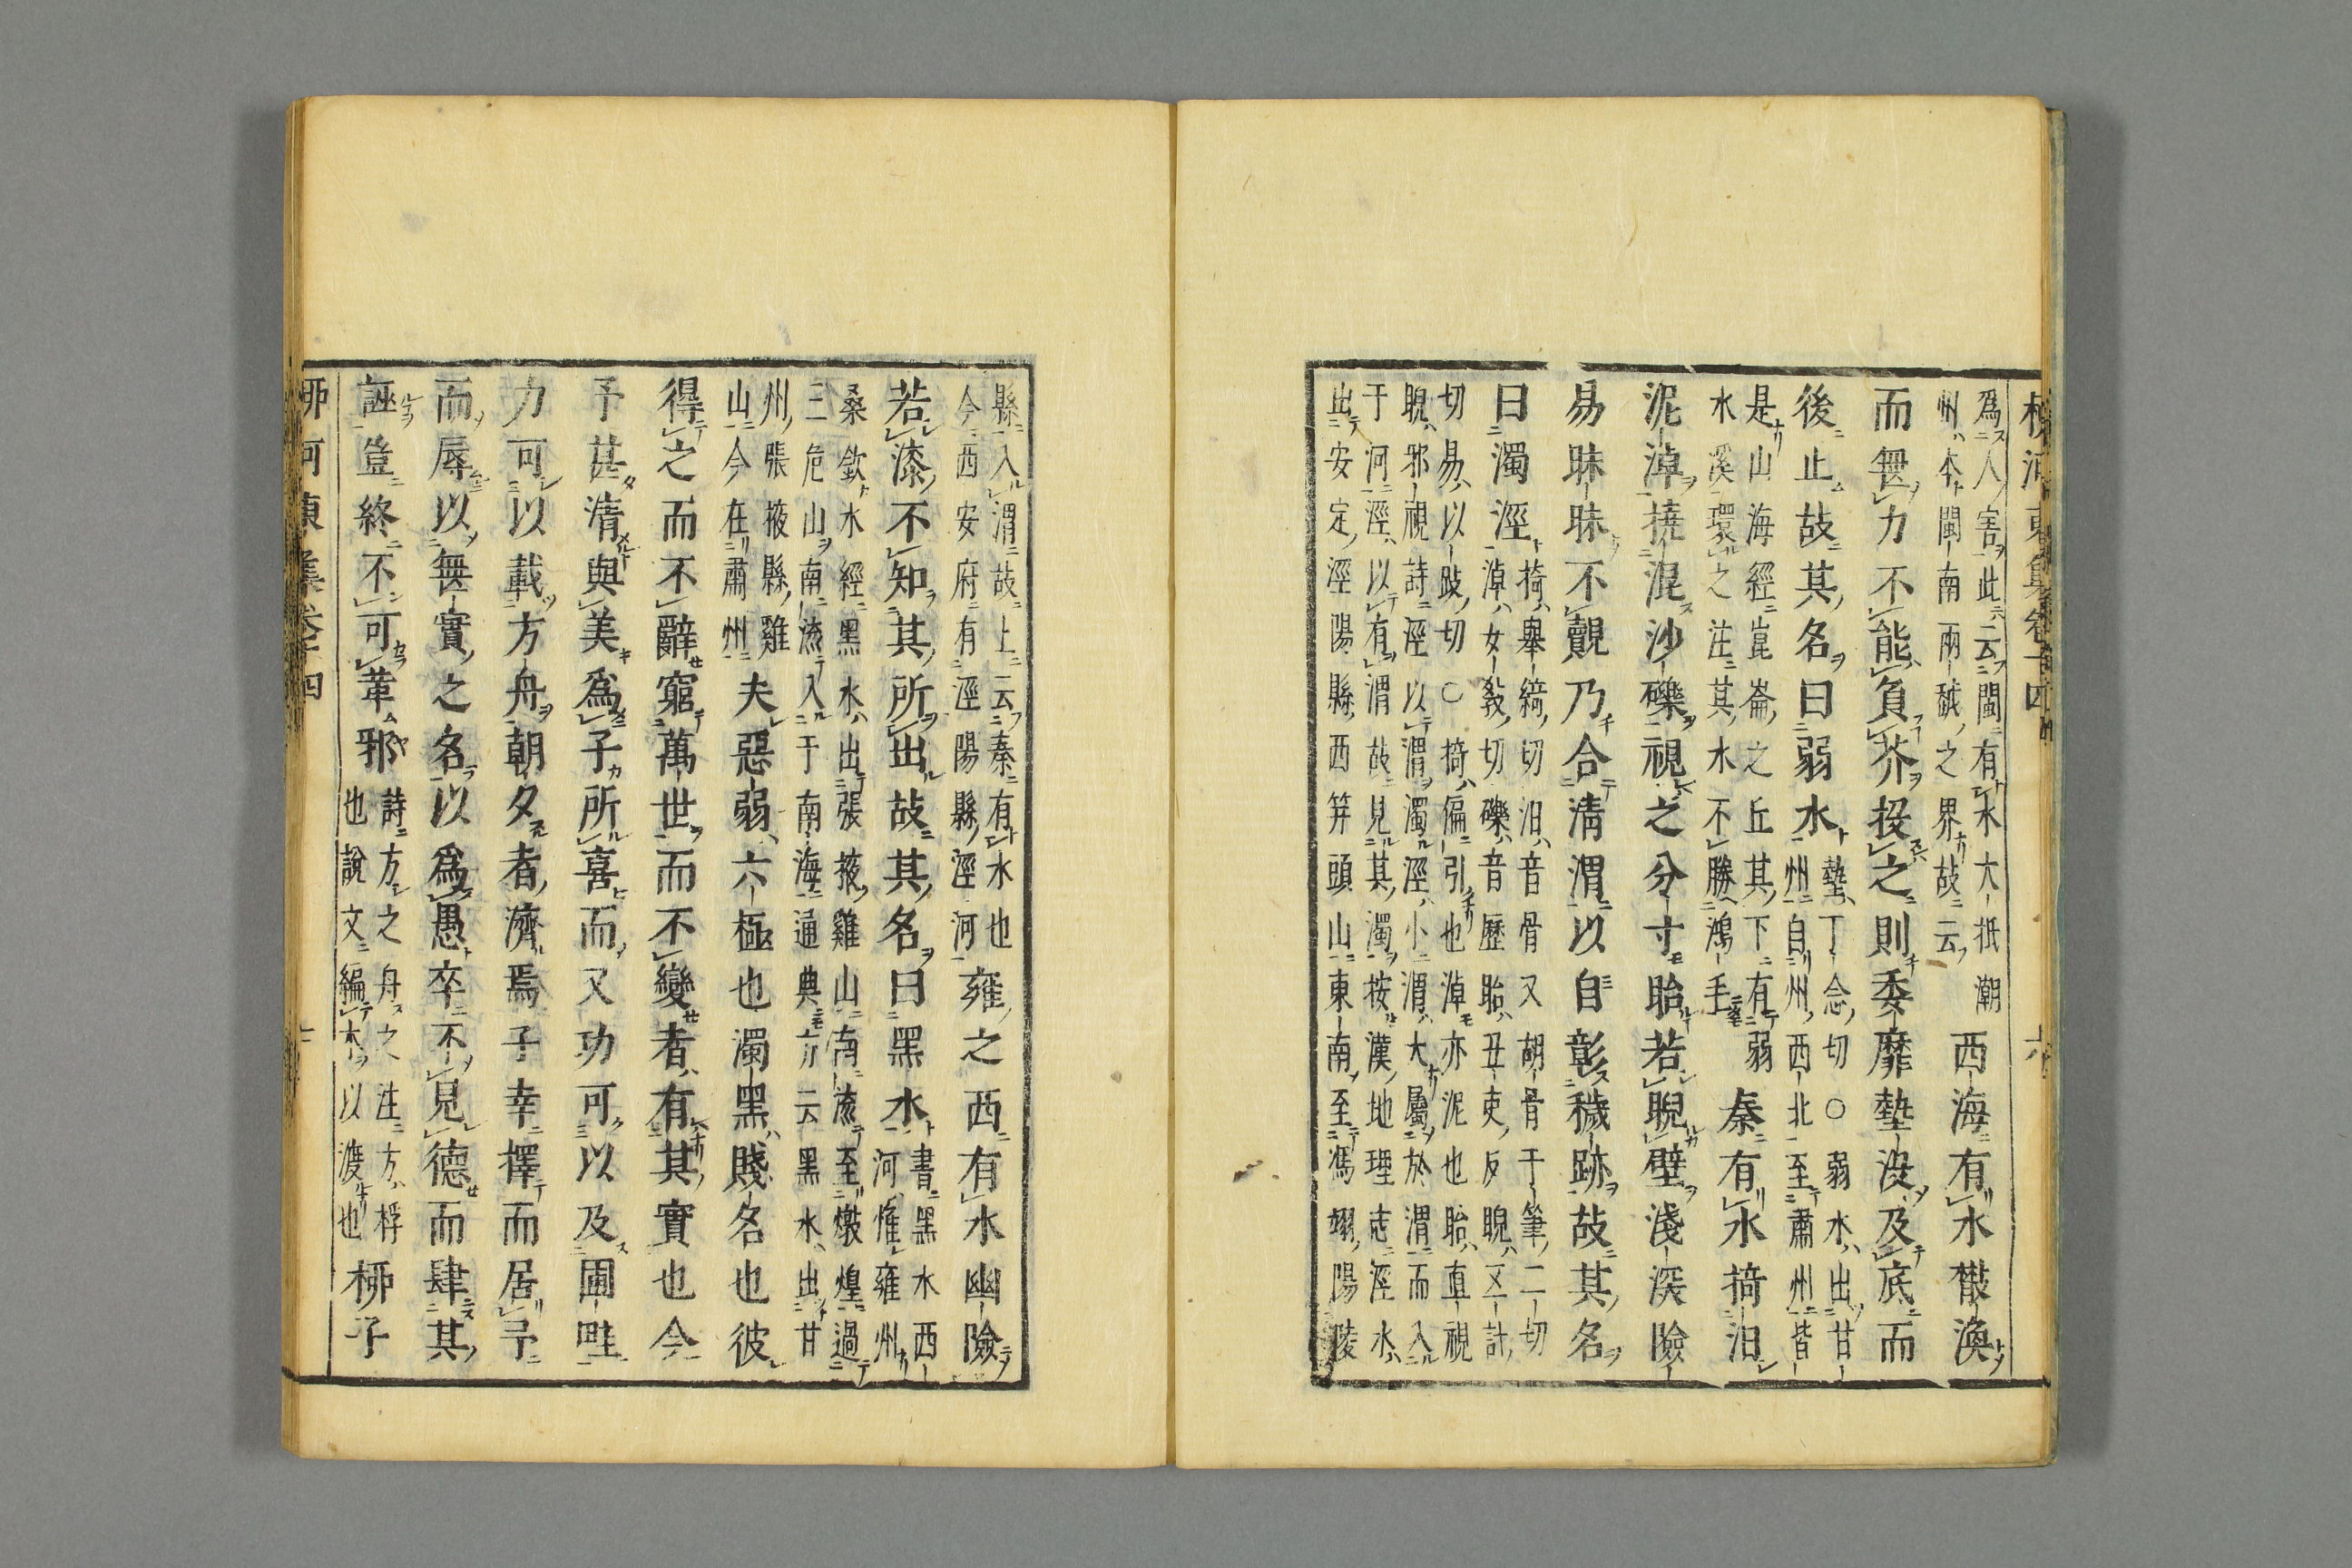 柳河東集卷十四　六
爲人害此云閩有水大抵潮
州本閩南兩越之界故云
西海有水散渙
而無力不能負芥投之則委靡墊没及底而
後止故其名曰弱水
墊丁念切○弱水出甘
州自州西北至肅州皆
是山海經崑崙之丘其下有弱
水溪環之注其水不勝鴻毛
秦有水掎汩
泥淖撓混沙礫視之分寸眙若睨壁淺深險
易昧昧不覿乃合清渭以自彰穢跡故其名
曰濁涇
掎舉綺切汨音骨又胡骨于筆二切
淖女敎切礫音歷眙丑吏反睨五計
切易以豉切○掎偏引也淖亦泥也眙直視
睨邪視詩涇以渭濁涇小渭大屬於渭而入
于河涇以有渭故見其濁按漢地理志涇水
出安定涇陽縣西笄頭山東南至馮翊陽陵
縣入渭故上云秦有水也
今西安府有涇陽縣涇河
雍之西有水幽險
若漆不知其所出故其名曰黑水
書黑水西
河惟雍州
桑欽水經黑水出張掖雞山南流至燉煌過
三危山南流入于南海通典亦云黑水出甘
州張掖縣雞
山今在肅州
夫惡弱六極也濁黑賤名也彼
得之而不辭窮萬世而不變者有其實也今
予甚清與美爲子所喜而又功可以及圃畦
力可以載方舟朝夕者濟焉子幸擇而居予
而辱以無實之名以爲愚卒不見德而肆其
誣豈終不可革邪
詩方之舟之注方桴
也說文編木以渡也
柳子
柳河東集卷十四